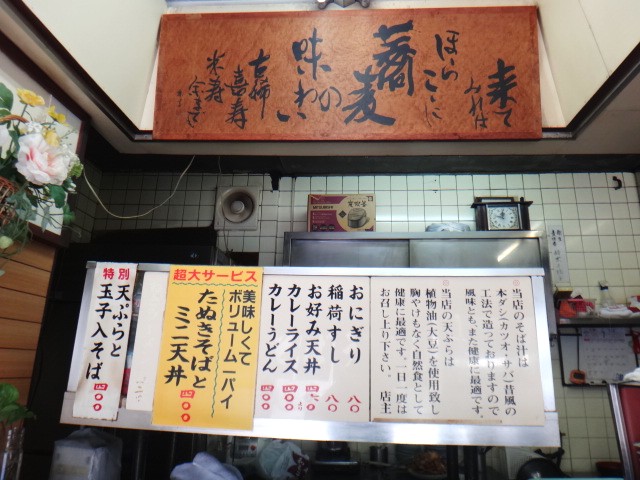 来て
みれば
ほらここに
蕎麦
の
味わい
古稀
喜寿
米寿
◎当店のそば汁は
本ダシ(カツオ・サバ)昔風の
工法で造っておりますので
風味とも、また健康に最適です。
◎当店の天ぷらは
植物油(大豆)を使用致し
胸やけもなく自然食として
健康に最適です。一日一度は
お召し上り下さい。 店主
おにぎり 八〇
稲荷すし 八〇
お好み天丼
カレーライス
カレーうどん
超大サービス
美味しくて
ボリューム一パイ
たぬきそばと
ミニ天丼
特別
天ぷらと
玉子入そば